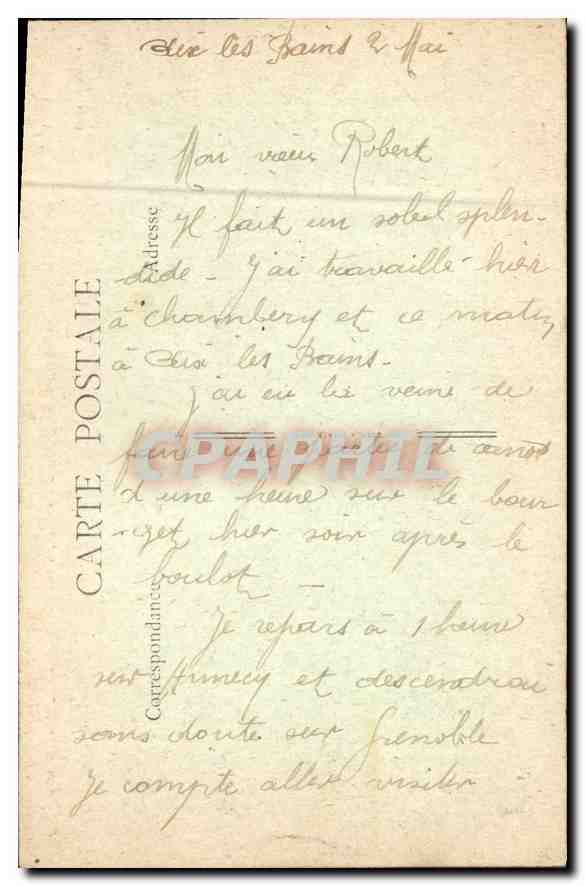 Aix les Bains 2 Mai
Mon vieux Robert
Il fait un soleil splen-
dide - J'ai travaillé hier
à Chambery et ce matin
à Aix les Bains -
J'ai eu la veine de
faire une de
d'une heure sur le bour
-get hier soir après le
boulot -
Je repars à 1 heure
sur Annecy et descendrai
sans doute sur Grenoble
Je compte aller visiter
CARTE POSTALE
Correspondance
Adresse
CPAPHIL